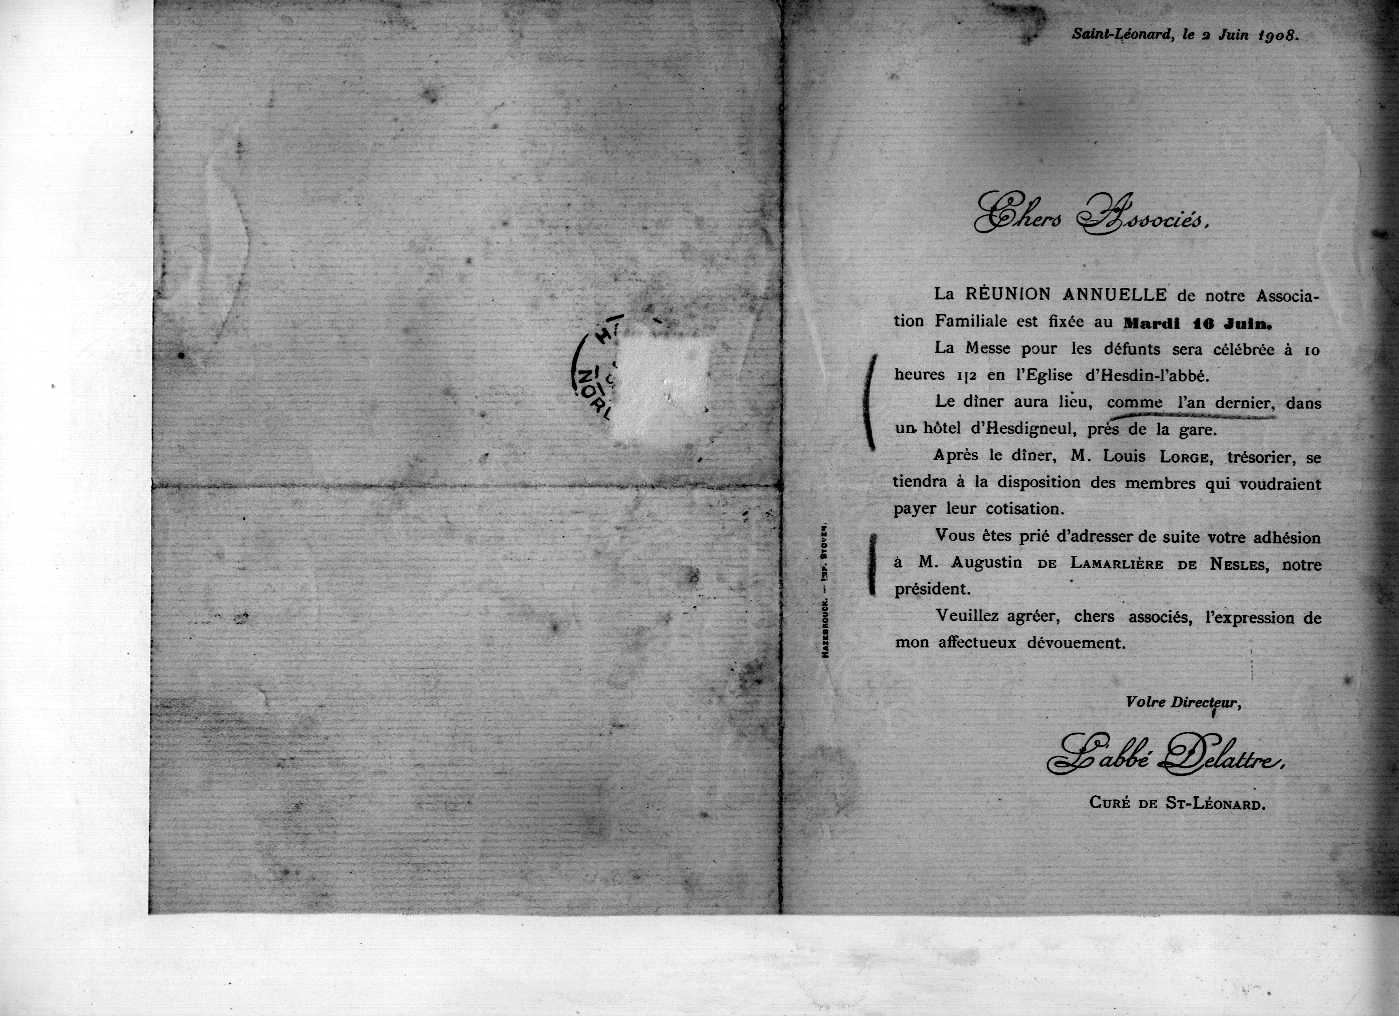 Saint-Léonard, le 2 Juin 1908.
Chers Associés,
La RÉUNION ANNUELLE de notre Associa-
tion Familiale est fixée au Mardi 16 Juin.
La Messe pour les défunts sera célébrée à 10
heures 1|2 en l'Eglise d'Hesdin-l'abbé.
Le dîner aura lieu, comme l'an dernier, dans
un hôtel d'Hesdigneul, près de la gare.
Après le dîner, M. Louis LORGE, trésorier, se
tiendra à la disposition des membres qui voudraient
payer leur cotisation.
Vous êtes prié d'adresser de suite votre adhésion
à M. Augustin DE LAMARLIÈRE DE NESLES, notre
président.
Veuillez agréer, chers associés, l'expression de
mon affectueux dévouement.
Votre Directeur,
L'abbé Delattre,
CURÉ DE ST-LÉONARD.
HAZEBROUCK. — IMP. STOVEN.
NOR